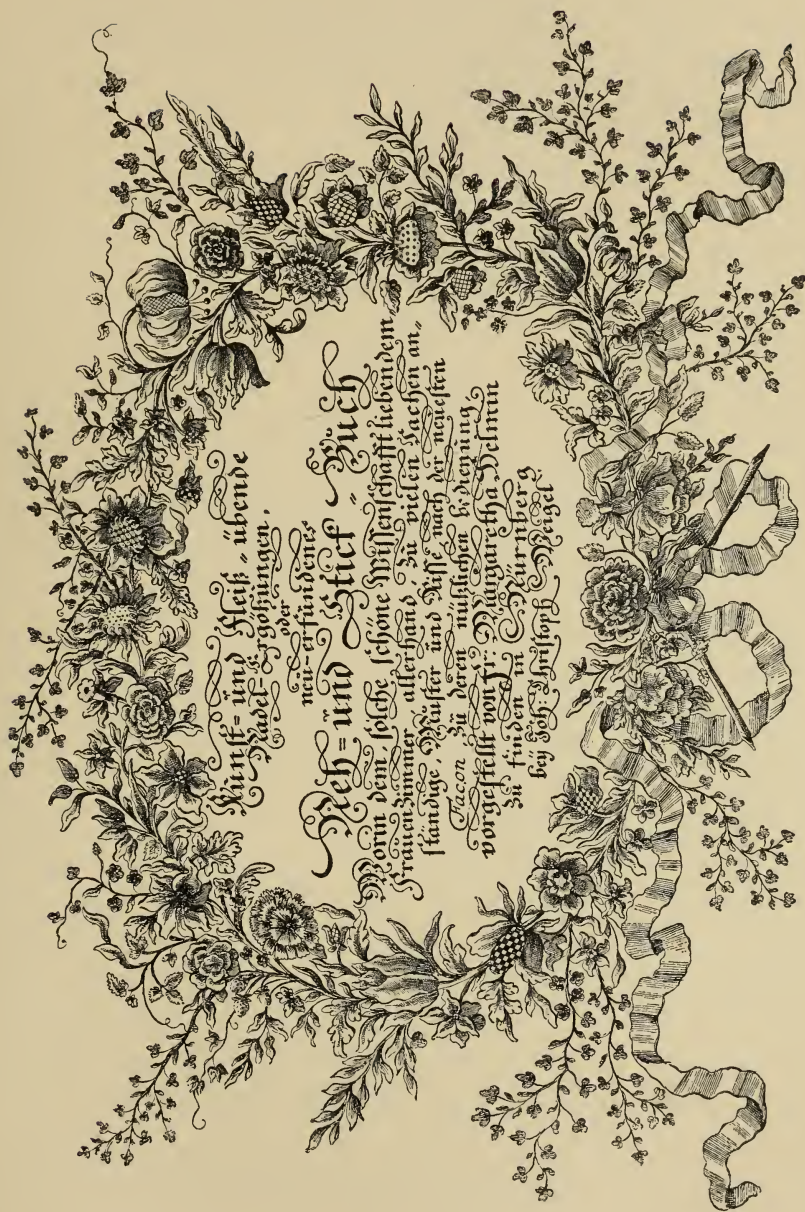 Kunst= und Fleiß=übende
Nadel=Ergötzungen,
oder
neu=erfundenes
Neh= und Stick=Buch
Worin dem, solche schöne Wissenschafft liebendem
Frauenzimmer allerhand, zu vielen Sachen an=
ständige, Muster und Risse, nach der neuesten
Facon zu deren nützlichen bedienung
vorgestellt von Fr: Margaretha Helmin
zu finden in Nürnberg
bey Joh: Christoph Weigel.